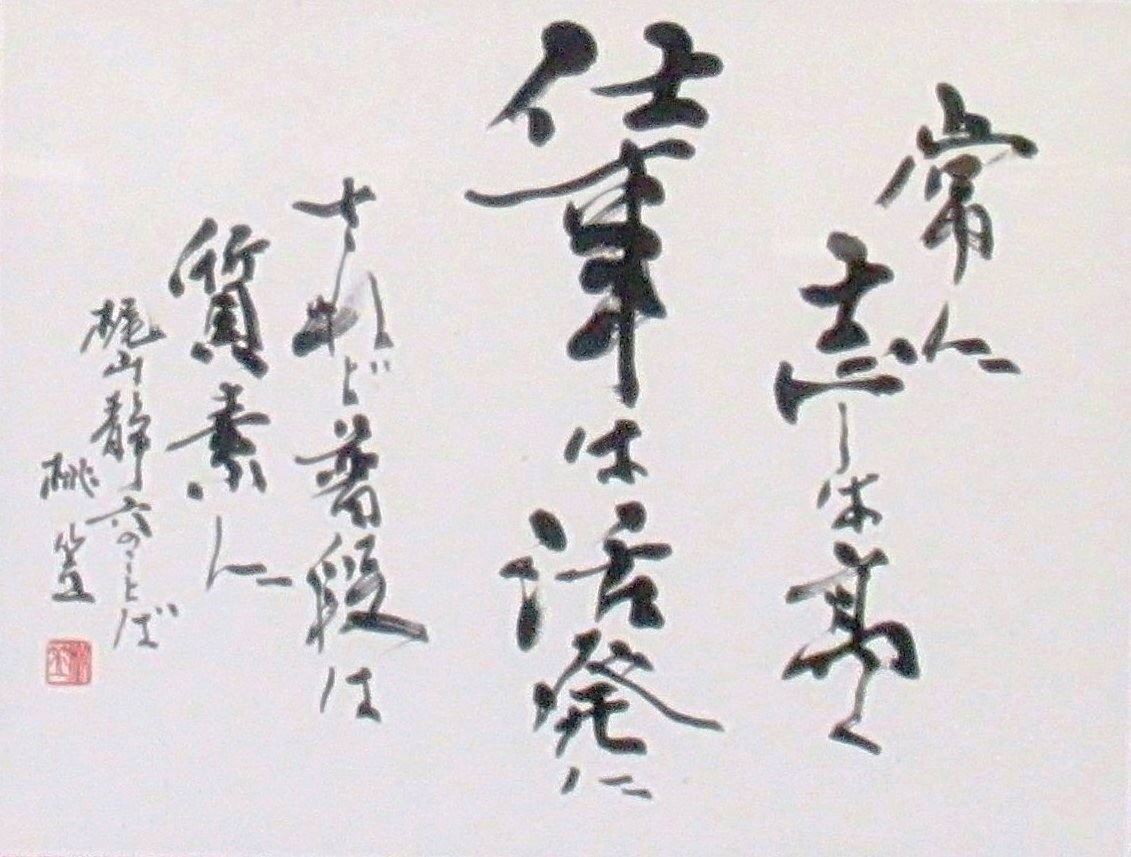 常に
志しは高く
仕事は活発に
されど普段は
質素に
梶山静六のことば
桃笠